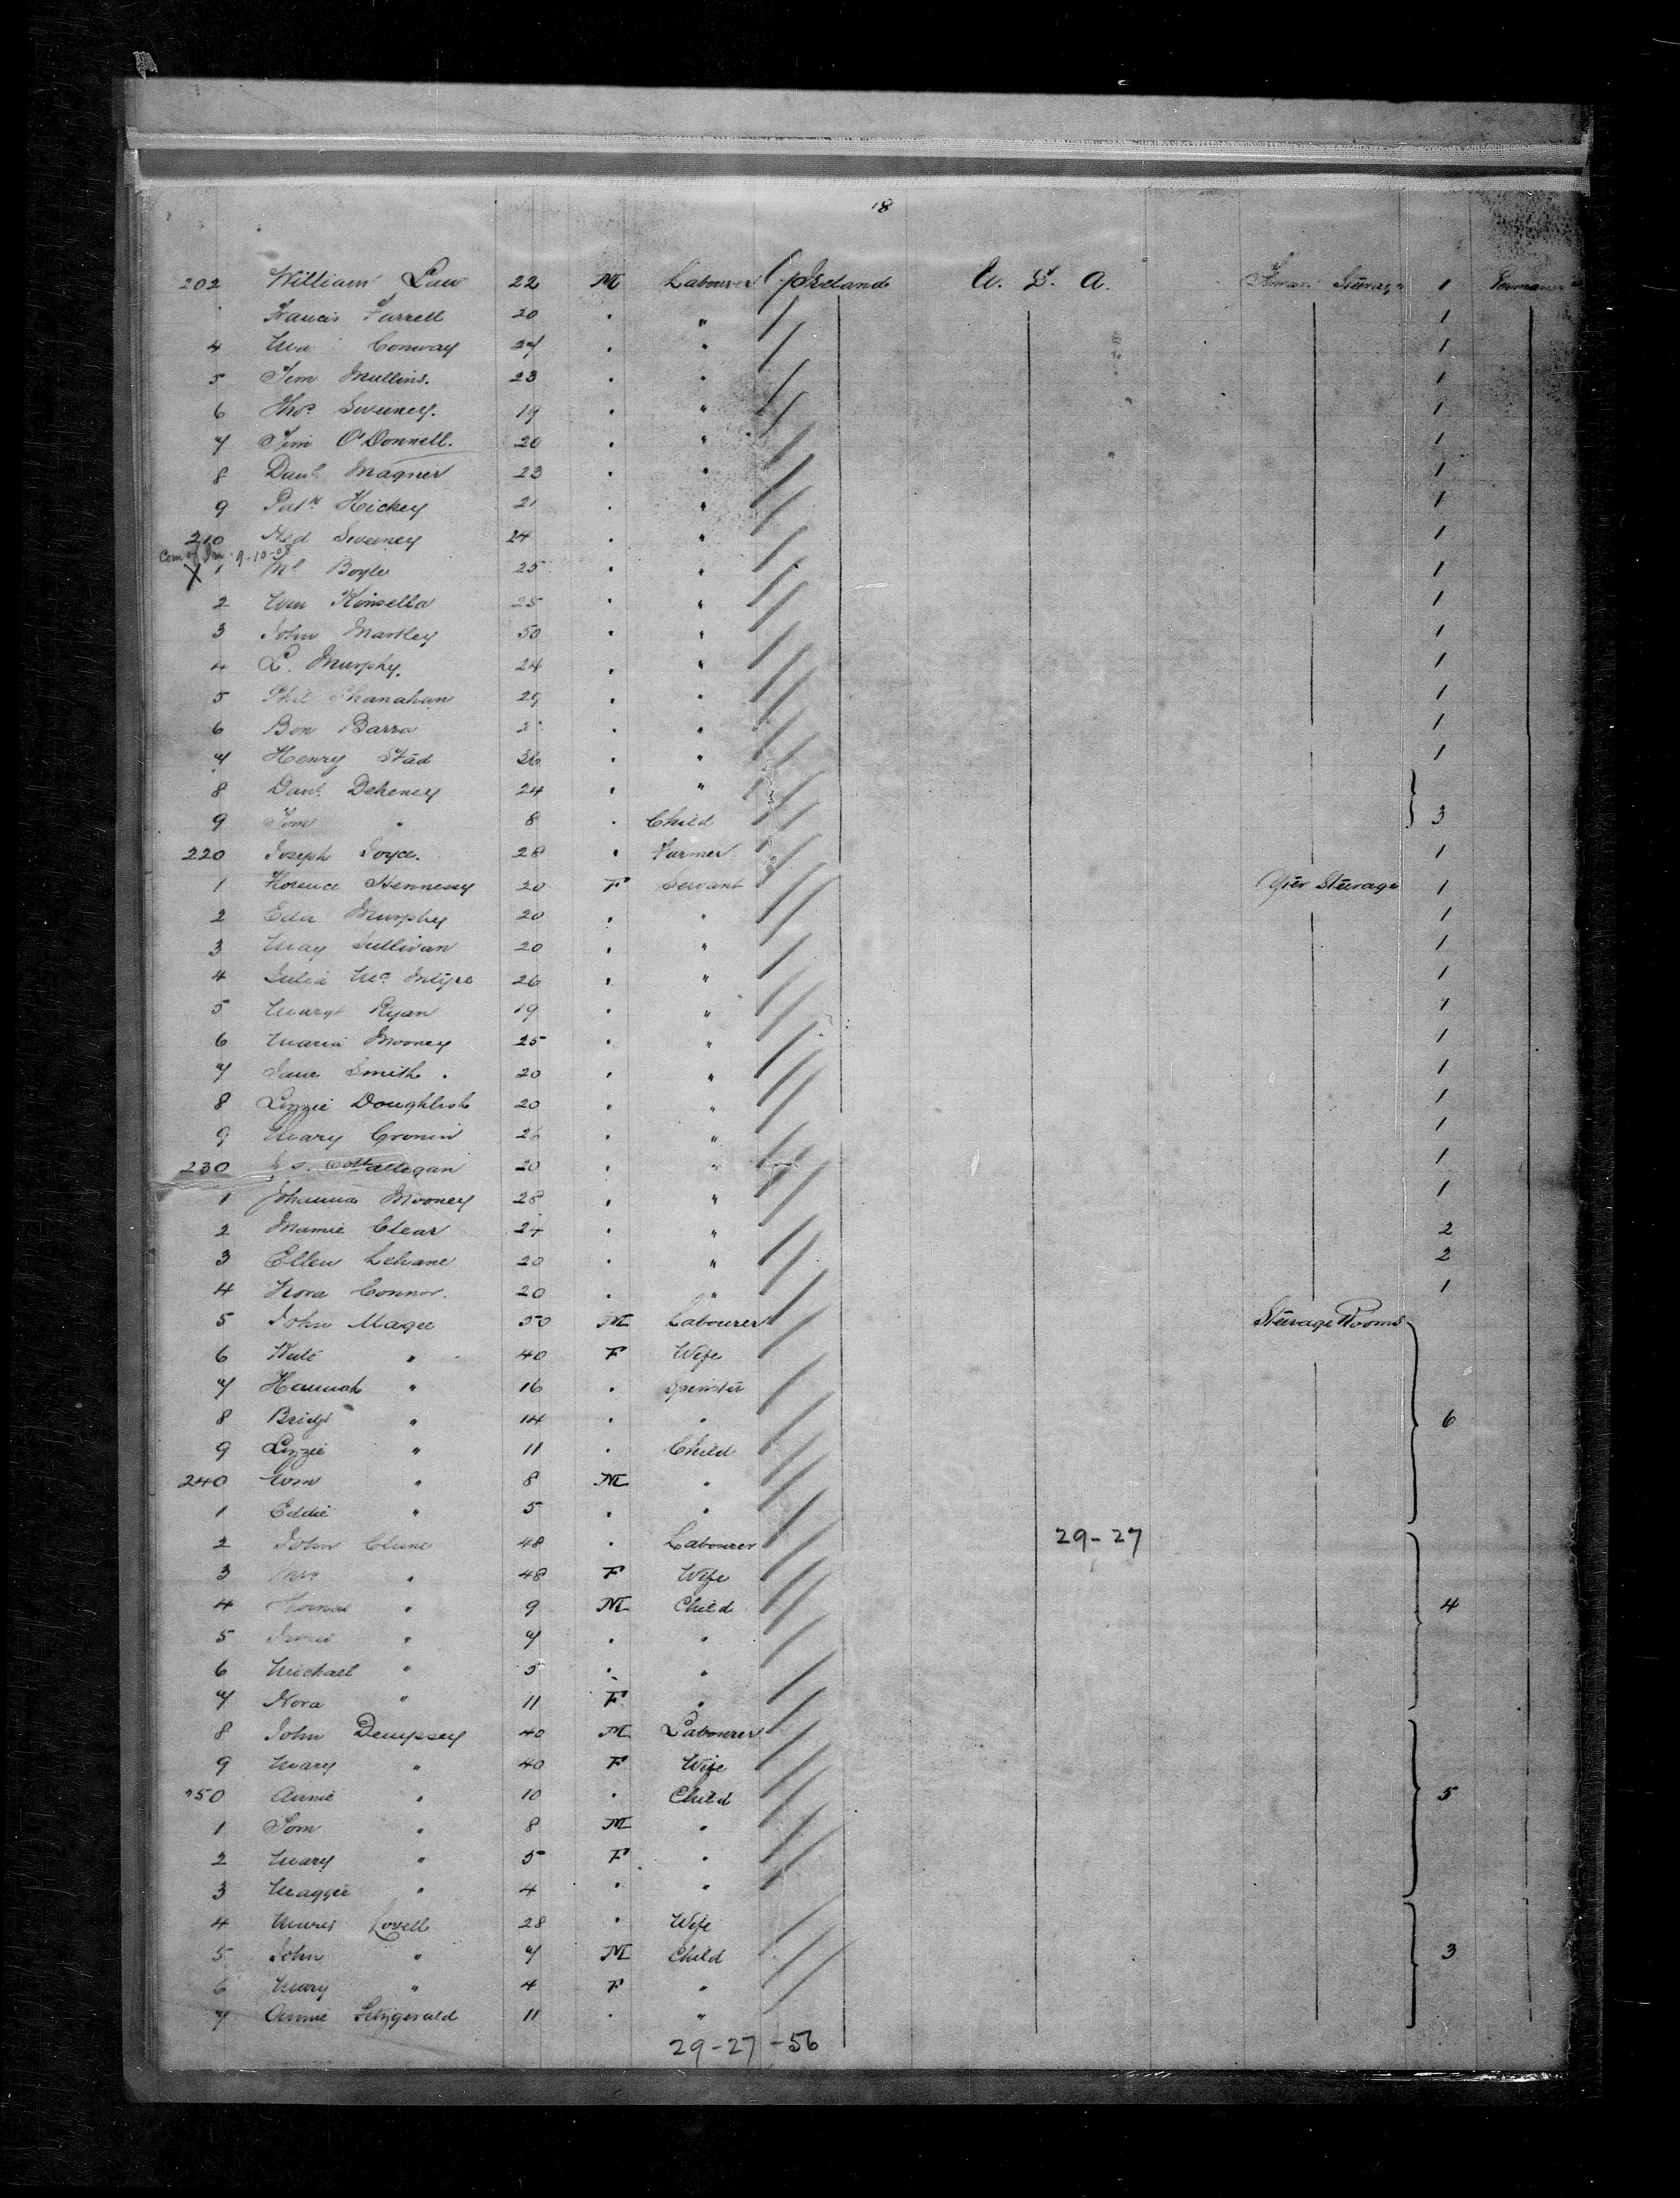 18
202 William Law 22 M Labourer Ireland U. S. A. Steerage 1
Francis Farrell 20 . " 1
4 Wm Conway 27 . " 1
5 Tim Mullins. 23 . " 1
6 Thos Sweeney. 19 . " 1
7 Tim O'Donnell. 20 . " 1
8 Danl Magner 23 . " 1
9 Patk Hickey 21 . " 1
210 Sweeney 24 . " 1
Com of Im. 9-10-08
X 1 Ml Boyle 25 . " 1
2 Wm Kinsella 25 . " 1
3 John Martley 50 . " 1
4 L. Murphy. 24 . " 1
5 Phil Shanahan 29 . " 1
6 Ben Barra . " 1
7 Henry Stad 26 . " 1
8 Danl Deheney 24 . "
9 Tom " 8 . Child 3
220 Joseph Joyce. 28 . Farmer 1
1 Florence Hennessy 20 F Servant After Steerage 1
2 Eda Murphy 20 . " 1
3 May Sullivan 20 . " 1
4 Julia McIntyre 26 . " 1
5 Margt Ryan 19 . " 1
6 Maria Mooney 25 . " 1
7 Jane Smith . 20 . " 1
8 Lizzie Doughlish 20 . " 1
9 Mary Cronin 26 . " 1
230 20 . " 1
1 Johanna Mooney 28 . " 1
2 Mamie Clear 24 . " 2
3 Ellen Lehane 20 . " 2
4 Nora Connor. 20 . " 1
5 John Magee 50 M Labourer Steerage Rooms
6 Kate " 40 F Wife
7 Hannah " 16 . Spinster
8 Bridgt " 14 . " 6
9 Lizzie " 11 . Child
240 Wm " 8 M "
1 Eddie " 5 . "
2 John Clune 48 . Labourer 29-27
3 Mrs " 48 F Wife
4 " 9 M Child 4
5 " 7 . "
6 Michael " 5 . "
7 Nora " 11 F "
8 John Dempsey 40 M Labourer
9 Mary " 40 F Wife
250 Annie " 10 . Child 5
1 Tom " 8 M "
2 Mary " 5 F "
3 Maggie " 4 . "
4 Lovell 28 . Wife
5 John " 7 M Child 3
6 Mary " 4 F "
7 Annie Fitzgerald 11 . "
29-27-56